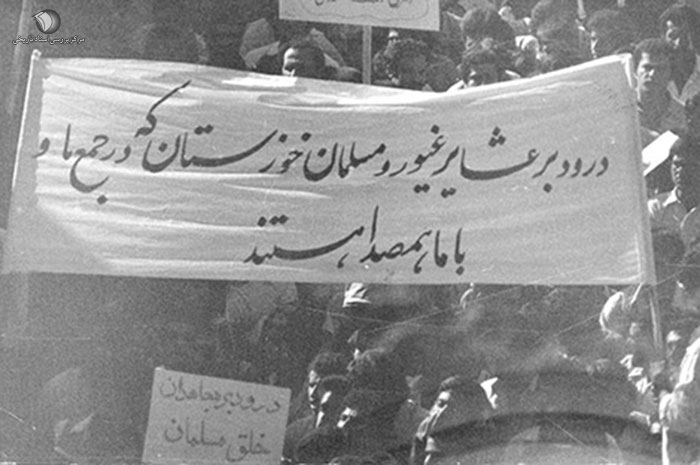 مرکز بررسی اسناد تاریخی
درود بر عشایر غیور و مسلمان خوزستان که در جمع ما و
با ما همصدا هستند
درود بر مجاهدان
خلق مسلمان